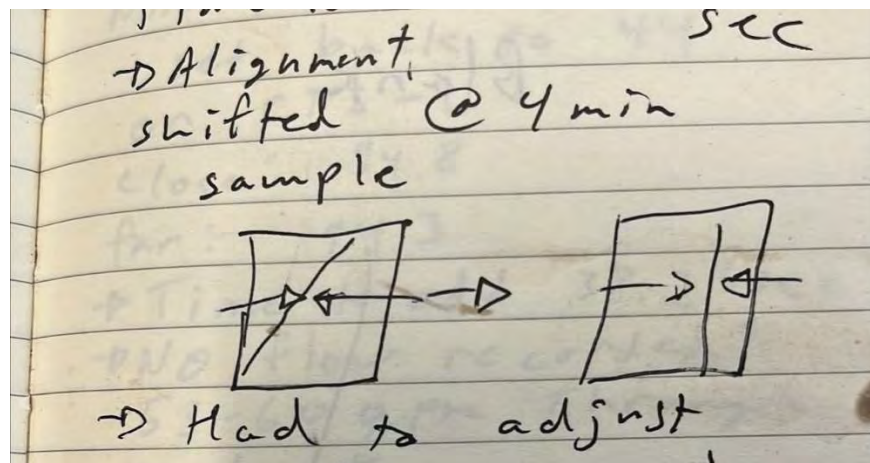 sec
→ Alignment
shifted @ 4 min
sample
→ Had to adjust